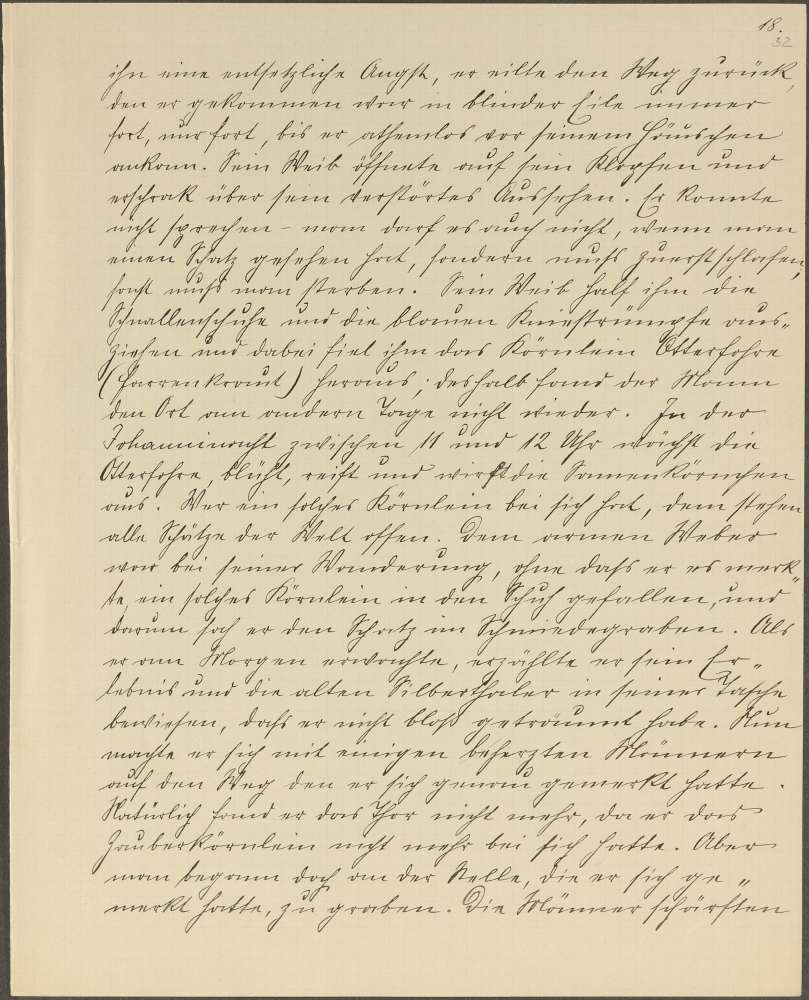 18.
32
ihn eine entsetzliche Angst, er eilte den Weg zurück,
den er gekommen war in blinder Eile immer
fort, nur fort, bis er athemlos vor seinem Häuschen
ankam. Sein Weib öffnete auf sein Klopfen und
erschrak über sein verstörtes Aussehen. Er konnte
nicht sprechen - man darf es auch nicht, wenn man
einen Schatz gesehen hat, sondern muß zuerst schlafen,
sonst muß man sterben. Sein Weib half ihm die
Schnallenschuhe und die blauen Kniestrümpfe aus-
ziehen und dabei fiel ihm das Körnlein Otterfohre
(Farrenkraut) heraus; deshalb fand der Mann
den Ort am andern Tage nicht wieder. In der
Johanninacht zwischen 11 und 12 Uhr wächst die
Otterfohre, blüht, reift und wirft die Samenkörnchen
aus. Wer ein solches Körnlein bei sich hat, dem stehen
alle Schätze der Welt offen. Dem armen Weber
war bei seiner Wanderung, ohne daß er es merk-
te, ein solches Körnlein in den Schuh gefallen, und
darum sah er den Schatz im Schmiedegraben. Als
er am Morgen erwachte, erzählte er sein Er-
lebnis und die alten Silberthaler in seiner Tasche
bewiesen, daß er nicht bloß geträumt habe. Nun
machte er sich mit einigen beherzten Männern
auf den Weg den er sich genau gemerkt hatte.
Natürlich fand er das Thor nicht mehr, da er das
Zauberkörnlein nicht mehr bei sich hatte. Aber
man begann doch an der Stelle, die er sich ge-
merkt hatte, zu graben. Die Männer schärften